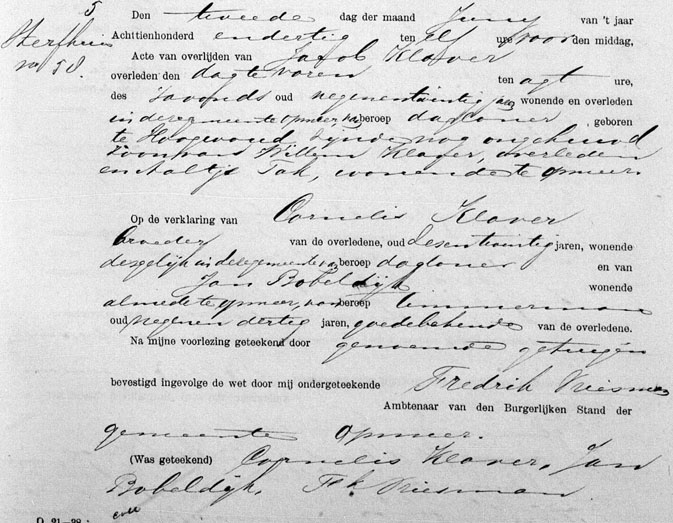 5
Den tweede dag der maand Juny van 't jaar
Sterfhuis
Achttienhonderd en dertig ten elf ure voor den middag,
no 58.
Acte van overlijden van Jacob Klaver
overleden den dag te voren ten agt ure,
des savonds oud negenentwintig jaar wonende en overleden
in dese gemeente opmeer, van beroep dagloner geboren
te Hoogwoud zijnde nog ongehuwd
zoon van Willem Klaver, overleden
en Aaltje Tak, wonende te opmeer.
Op de verklaring van Cornelis Klaver
broeder van de overledene, oud sesentwintig jaren, wonende
desgelijk in dese gemeente, van beroep dagloner en van
Jan Bobeldijk wonende
almede te opmeer, van beroep timmerman
oud negenen dertig jaren, goede bekende van de overledene.
Na mijne voorlezing geteekend door genoemde getuigen
bevestigd ingevolge de wet door mij ondergeteekende Fredrik Vriesman
Ambtenaar van den Burgerlijken Stand der
gemeente Opmeer.
(Was geteekend) Cornelis Klaver, Jan
Bobeldijk, Fk. Vriesman
coll